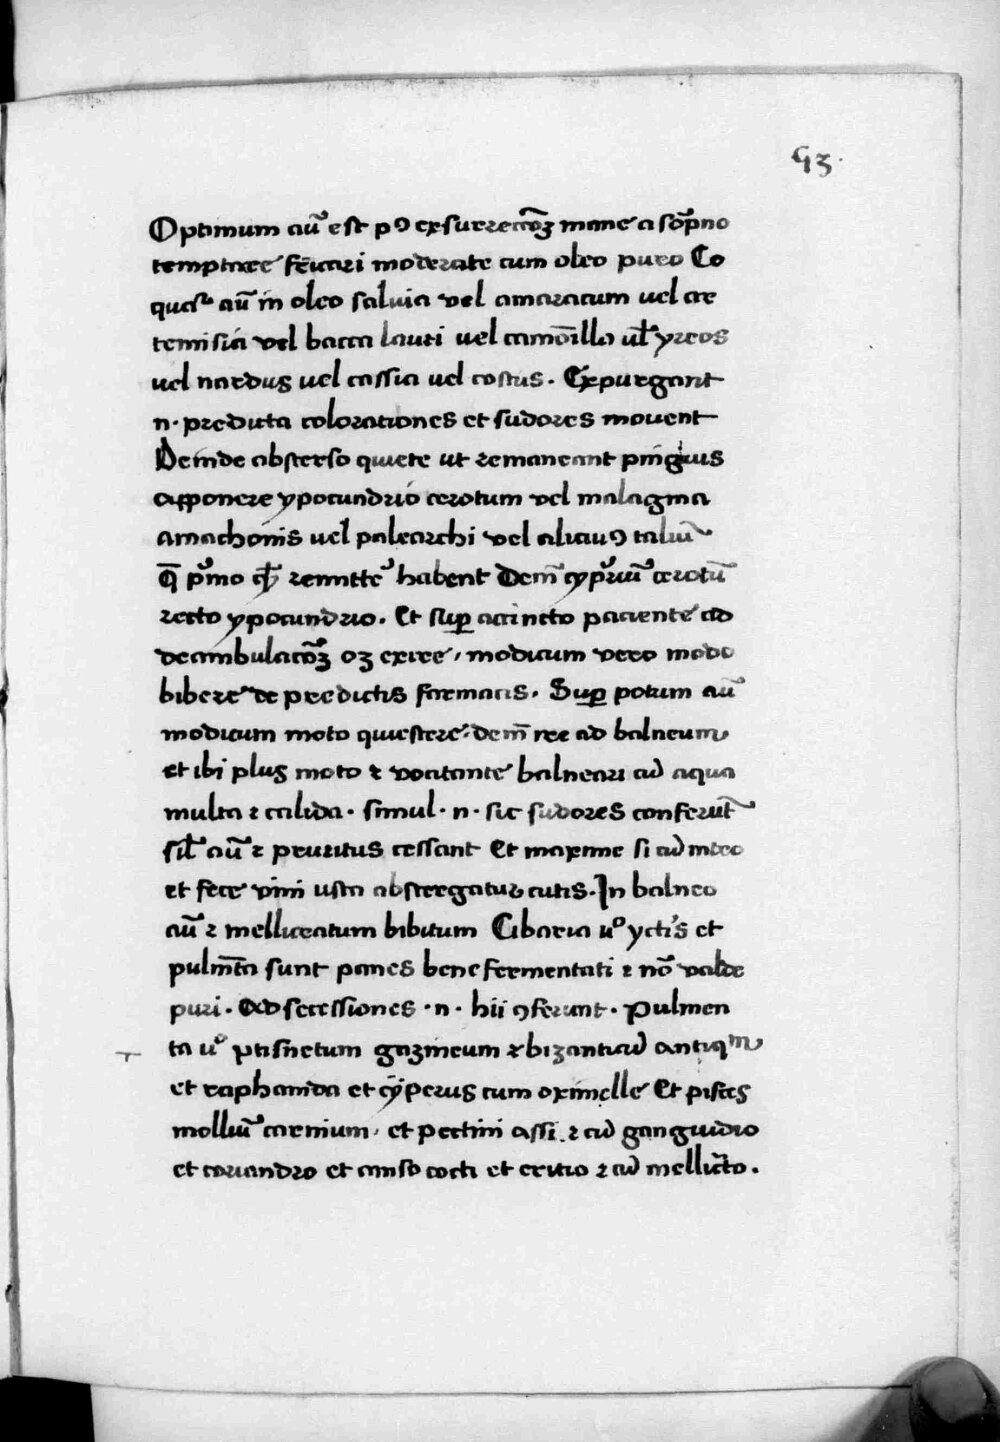 93.
Optimum aū est pꝰ exsurrectōꝫ mane a sōpno
temptare fēicari moderate cum oleo puro Co
quat᷑ aū in oleo saluia vel amaracum uel are
temisia vel bacca lauri uel camōilla ul̄ yreos
uel nardus uel cassia uel costus. Expurgant
n. predicta colorationes et sudores mouent
Deinde absterso quiete ut remaneant pinguis
apponere ypocundrio cerotum vel malagma
amachonis uel palearchi vel alicuiꝰ taliū
q̄ pͥmo remittē habent Dem̄ cypͥiū cerotū
recto ypocundrio. Et suꝑ accincto paciente ad
deambulacōꝫ oꝫ exire, modicum vero modo
bibere de predictis farmacis. Suꝑ potum aū
modicum moto quiescere. dem̄ ire ad balneum
et ibi plus moto ⁊ vocitante balneari cū aqua
multa ⁊ calida. simul. n. sic sudores conferūt
sil̄ aū ⁊ pruritus cessant Et maxime si cū nitro
et fece vini usta abstergatur cutis. In balneo
aū ⁊ mellicratum bibitum Cibaria uͦ yctis et
pulm̄ta sunt panes bene fermentati ⁊ nō valde
puri. Ad secessiones. n. hii ꝯferunt. Pulmen
ta uͦ ptisnetum gazineum ⁊ bizanticū antiqͫ
et raphanida et cyperus cum oximelle Et pisces
molliū carnium, et pectini assi ⁊ cū ganguidio
et coriandro et aniso cocti et eritio ⁊ cū mellic̄to.